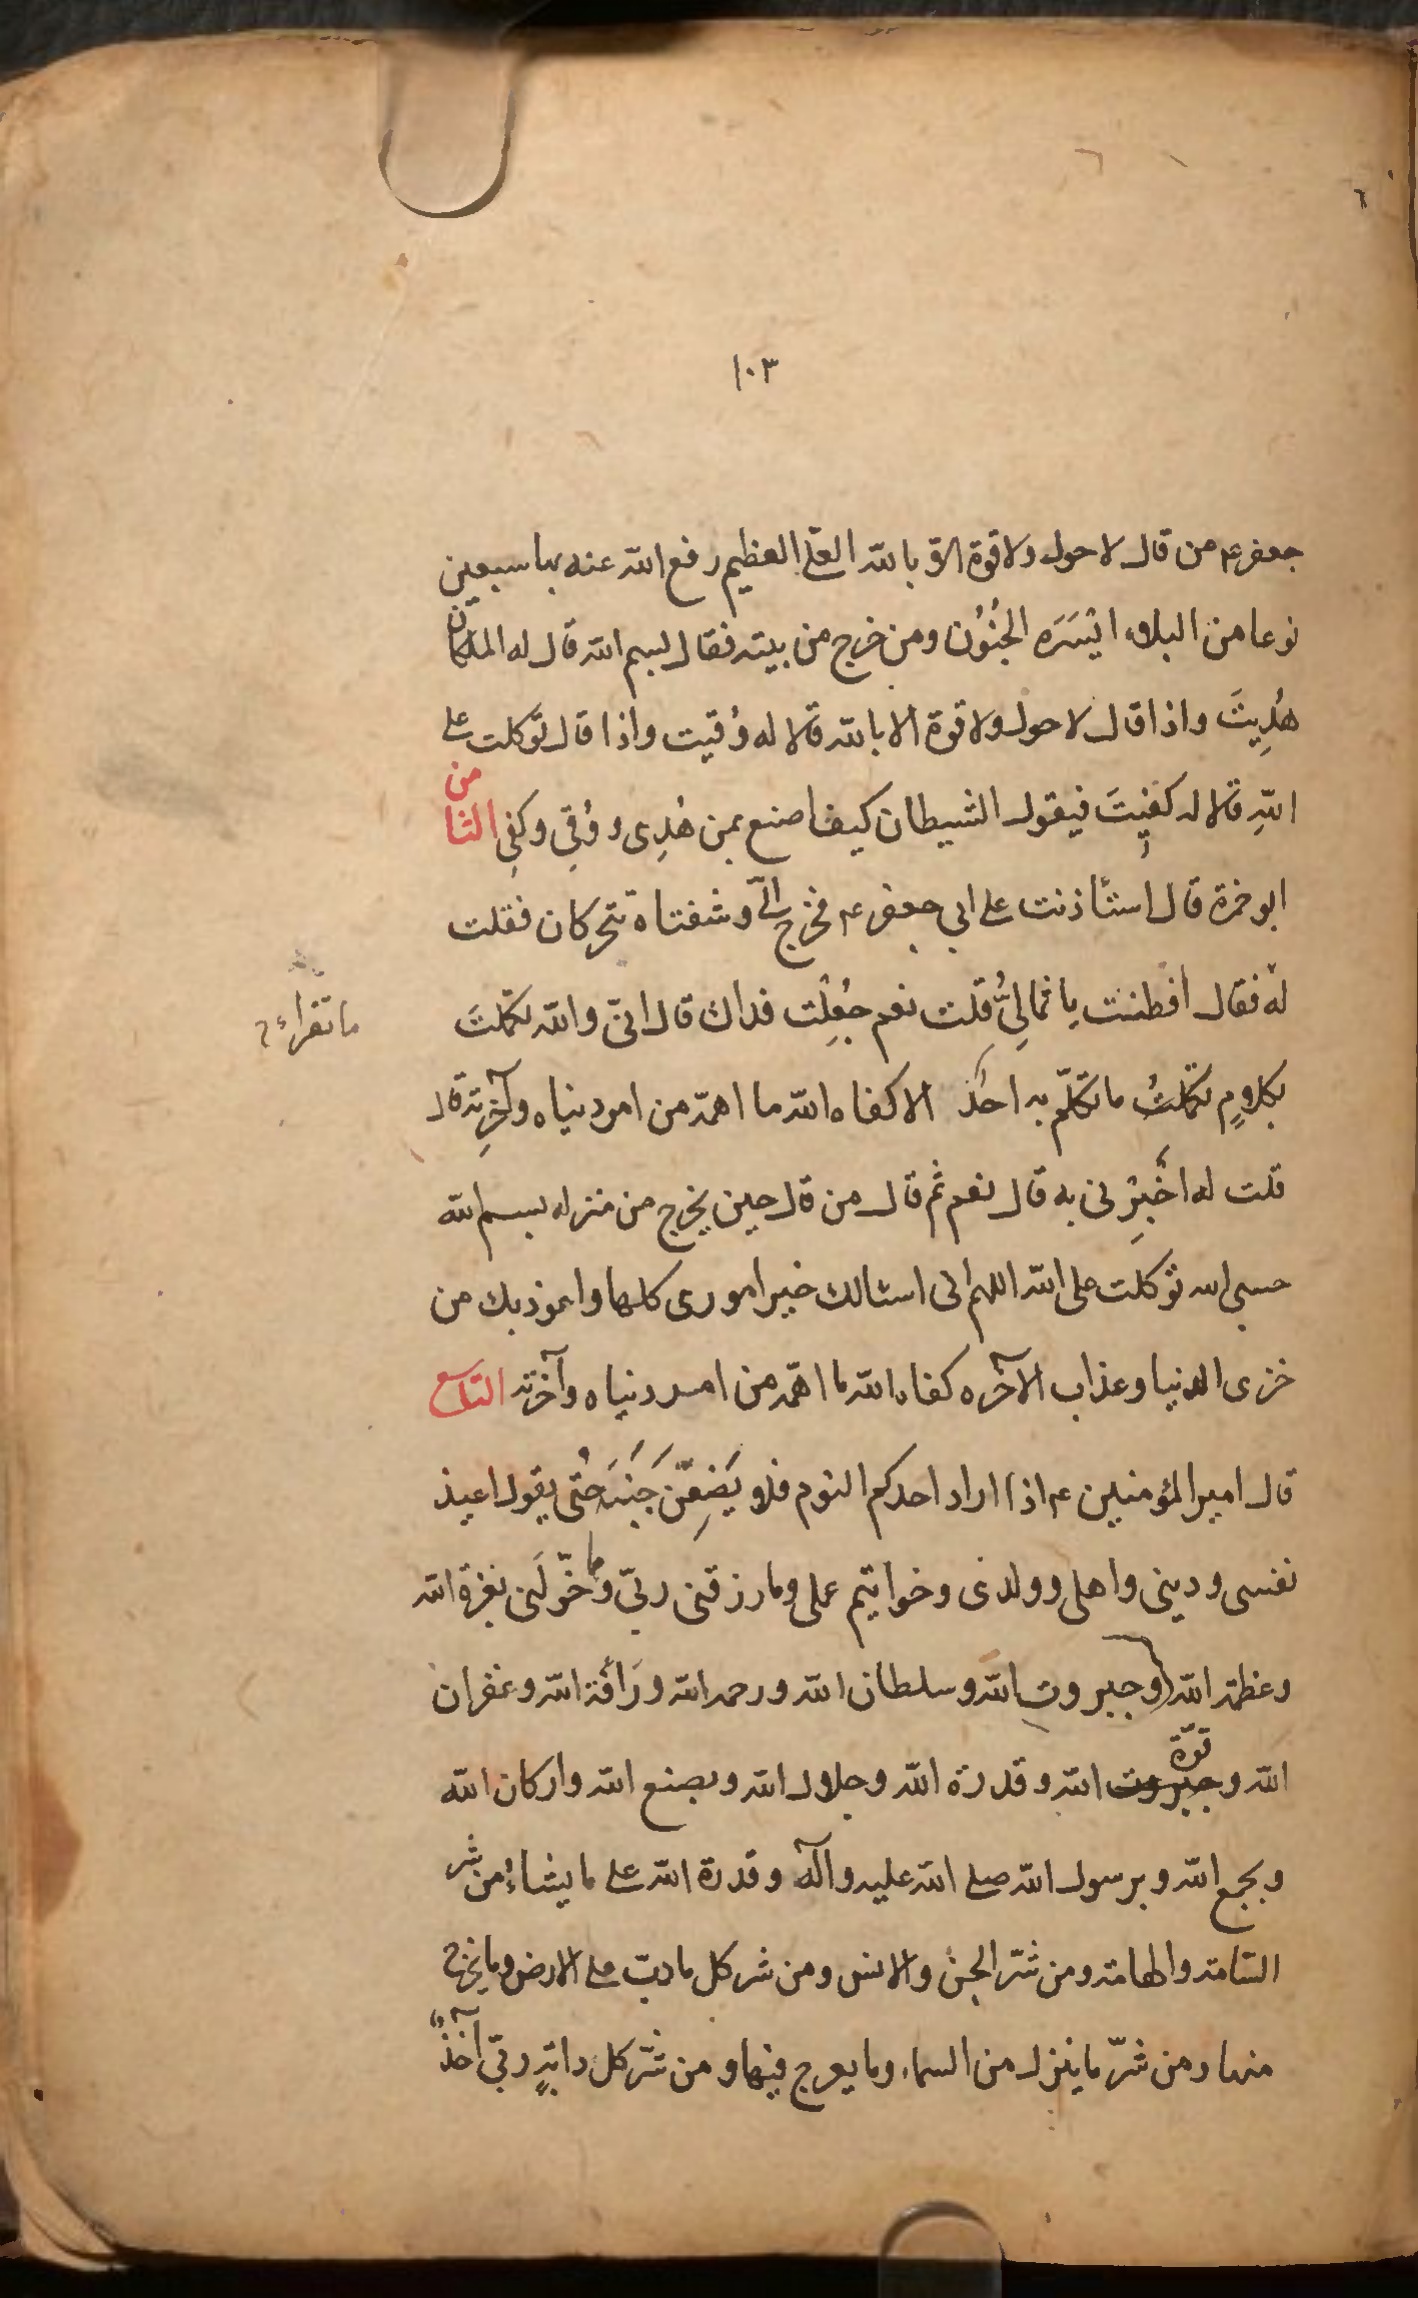 ٦
١٠٣
جعفر ع من قال لا حول ولا قوة الا بالله العلى العظيم رفع الله عنه بها سبعين
نوعا من البلاء ايْسَرَه الجُنُوْن ومن خرج من بيته فقال بسم الله قال له الملكان
هُدِيتَ واذا قال لا حول ولا قوة الا بالله قالا له وُقيت واذا قال توكلت على
اللهِ قالا له كفِيتَ فيقول الشيطان كيف اصنع بمن هُدِى ووُقِى وكفِى الثامن
ابو حمزة قال استأذنت على ابى جعفر ع فخرج الىّ وشفتاه تتحركان فقلت
له فقال افطنت يا ثمالِىُّ قلت نعم جُعِلت فداك قال انىّ والله تكلمتَ
ما تقراء
بكلامٍ تكلمتُ ما تكلّم به احدٌ الا كفاه الله ما اهمّه من امر دنياه وآخرِته قال
قلت له اخْبِرْنى به قال نعم ثم قال من قال حين يخرج من منزله بسم الله
حسبى الله توكلت على الله اللهم انى اسئالك خير امورى كلها واعوذ بك من
خزى الدنيا وعذاب الآخره كفاه الله ما اهمّه من امر دنياه وآخرته التاسع
قال امير المؤمنين ع اذا اراد احدكم النوم فلا يَضِعَنَّ جَنْبَه حتُى يقول اعيذ
نفسى ودينى واهلى وولدى وخواتيم عملى وما رزقنى ربىّ وما خوّلَنى بعزة الله
وعظمة الله وجبروت الله وسلطان الله ورحمه الله ورَأفة الله وغفران
قوّة
الله وجبروت الله وقدرة الله وجلال الله وبصنع الله واركان الله
وبجمع الله وبرسول الله صلى الله عليه وآله وقدرة الله على ما يشاءُ من شر
السّامة والهامة ومن شرّ الجن والانس ومن شر كل ما دبّ على الارض وما يخرج
منها ومن شرّ ما ينزل من السماء وما يعرج فيها ومن شرّ كل دابّةٍ ربّى آخذٌ